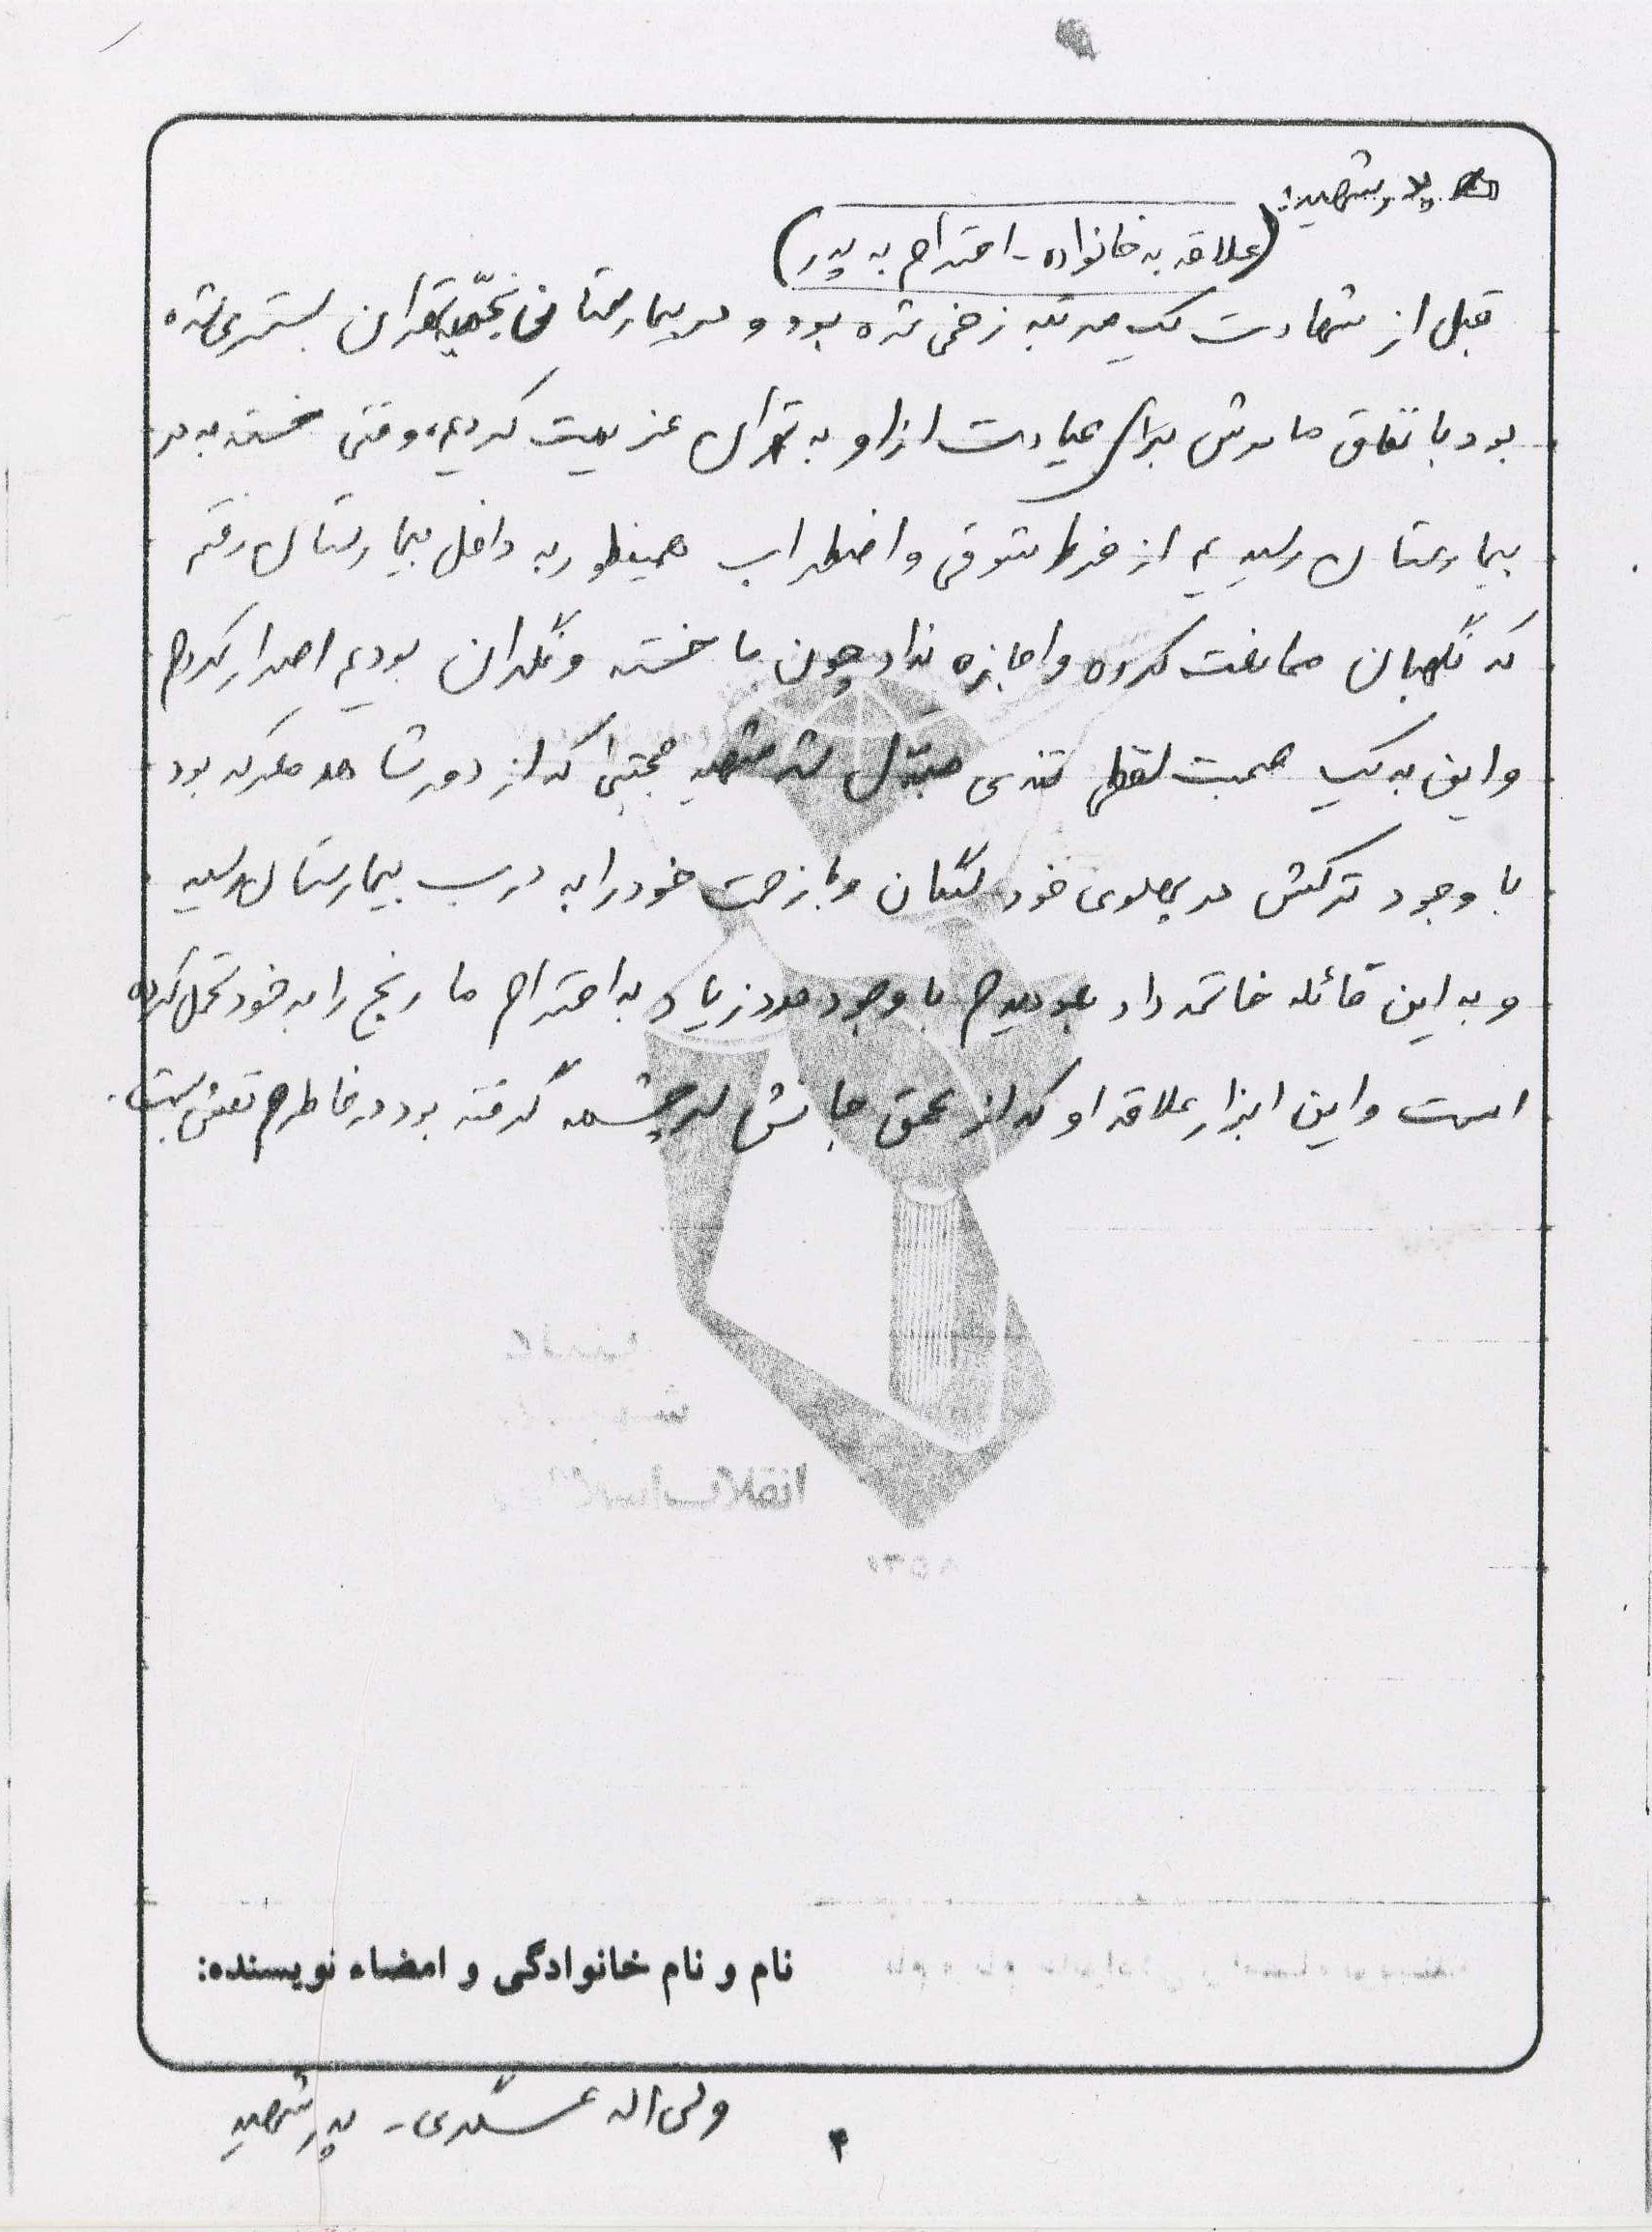 پدر شهید:
(علاقه به خانواده - احترام به پدر)
قبل از شهادت یک مرتبه زخمی شده بود و در بیمارستان نجمیه تهران بستری شده
بود با تفاق مادرش برای عیادت از او به تهران عزیمت کردیم، وقتی خسته به در
بیمارستان رسیدیم از فرط شوق و اضطراب همینطور به داخل بیمارستان رفتم
که نگهبان ممانعت کرده و اجازه نداد چون ما خسته و نگران بودیم اصرار کردم
و این به یک صحبت لفظی تندی مبدل شد شهید مجتبی که از دور شاهد ملرکه بود
با وجود ترکش در پهلوی خود لنگان و با زحمت خود را به درب بیمارستان رسید
و به این قائله خاتمه داد با وجود درد زیاد به احترام ما رنج را به خود تحمل کرده
است و این ابزار علاقه او که از عمق جانش سرچشمه گرفته بود در خاطرم نقش بست.
انقلاب اسلامی
نام و نام خانوادگی و امضاء نویسنده:
ولی اله عسگری - پدر شهید
۴